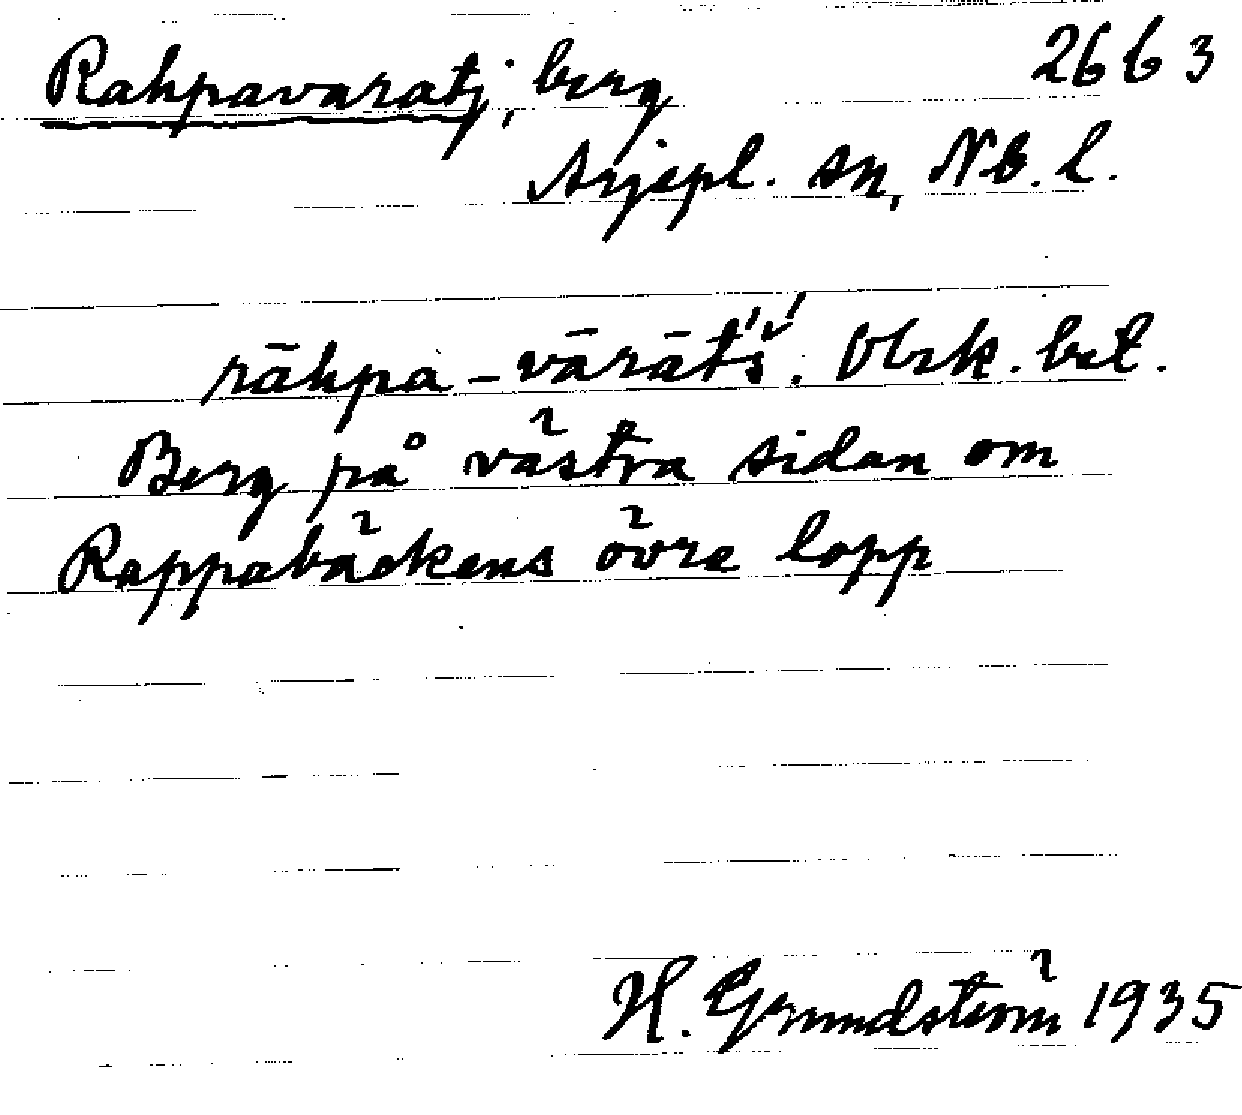 Rahpavaratj, berg 2663
Arjepl. sn, Nb. l.
rāhpa-vārāt'š'. Obek. bet.
Berg på västra sidan om
Rappabäckens övre lopp
H. Grundström 1935